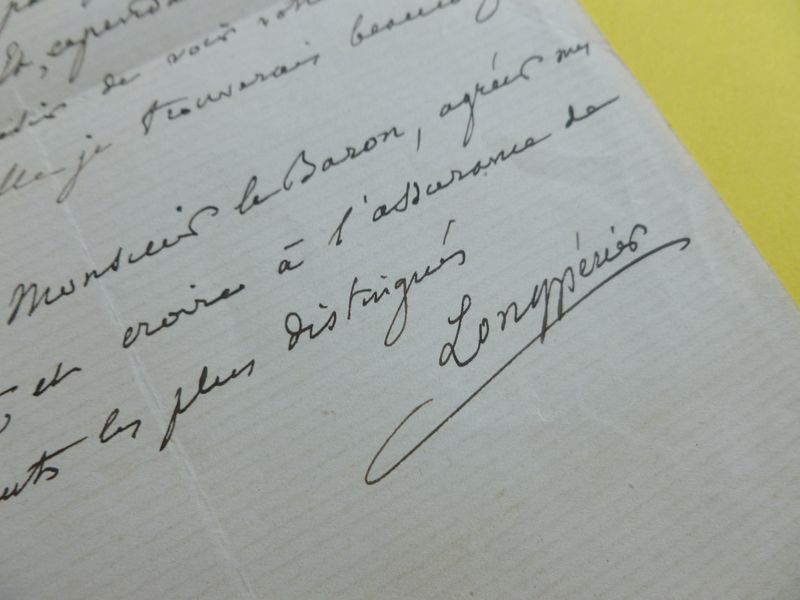 , cependant
de voir
je trouverais beaucoup
Monsieur le Baron, agréer mes
et croire à l'assurance de
les plus distingués
Longpérier